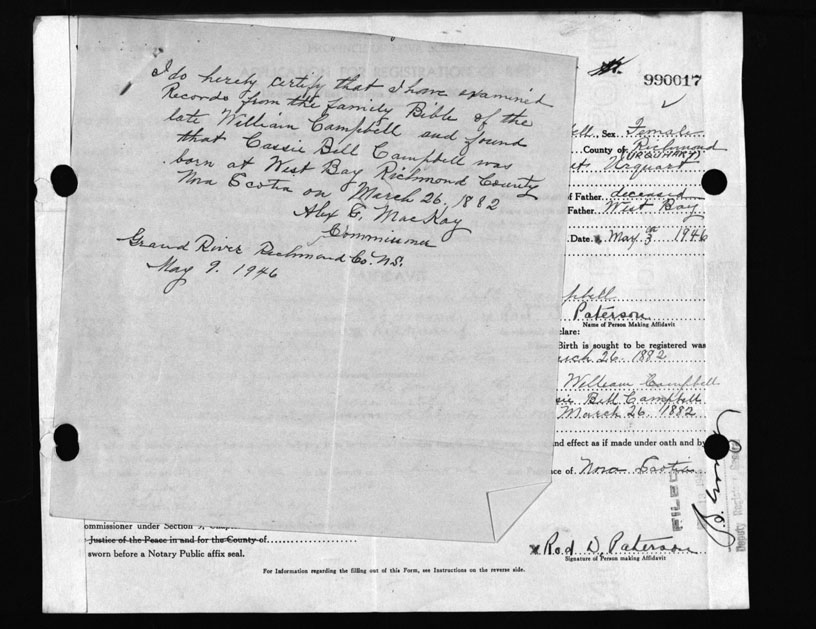 I do hereby certify that I have examined
Records from the family Bible of the
late William Campbell and found
that Cassie Bell Campbell was
born at West Bay Richmond County
Nova Scotia on March 26, 1882
Alex G. MacKay
Commissioner
Grand River Richmond Co. N.S.
May 9. 1946
990017
ell Sex Female
County of Richmond
(URQUHART)
st Urquart
f Father deceased
Father West Bay
Date May 3 1946
pbell
Paterson
Name of Person Making Affidavit
clare:
Birth is sought to be registered was
rch 26 1882
William Campbell
sie Bell Campbell
March 26, 1882
nd effect as if made under oath and by
ce of Nova Scotia
FILED
Deputy Registrar
ommissioner under Section
Justice of the Peace in and for the County of
sworn before a Notary Public affix seal.
Rod D. Paterson
Signature of Person making Affidavit
For Information regarding the filling out of this Form, see Instructions on the reverse side.